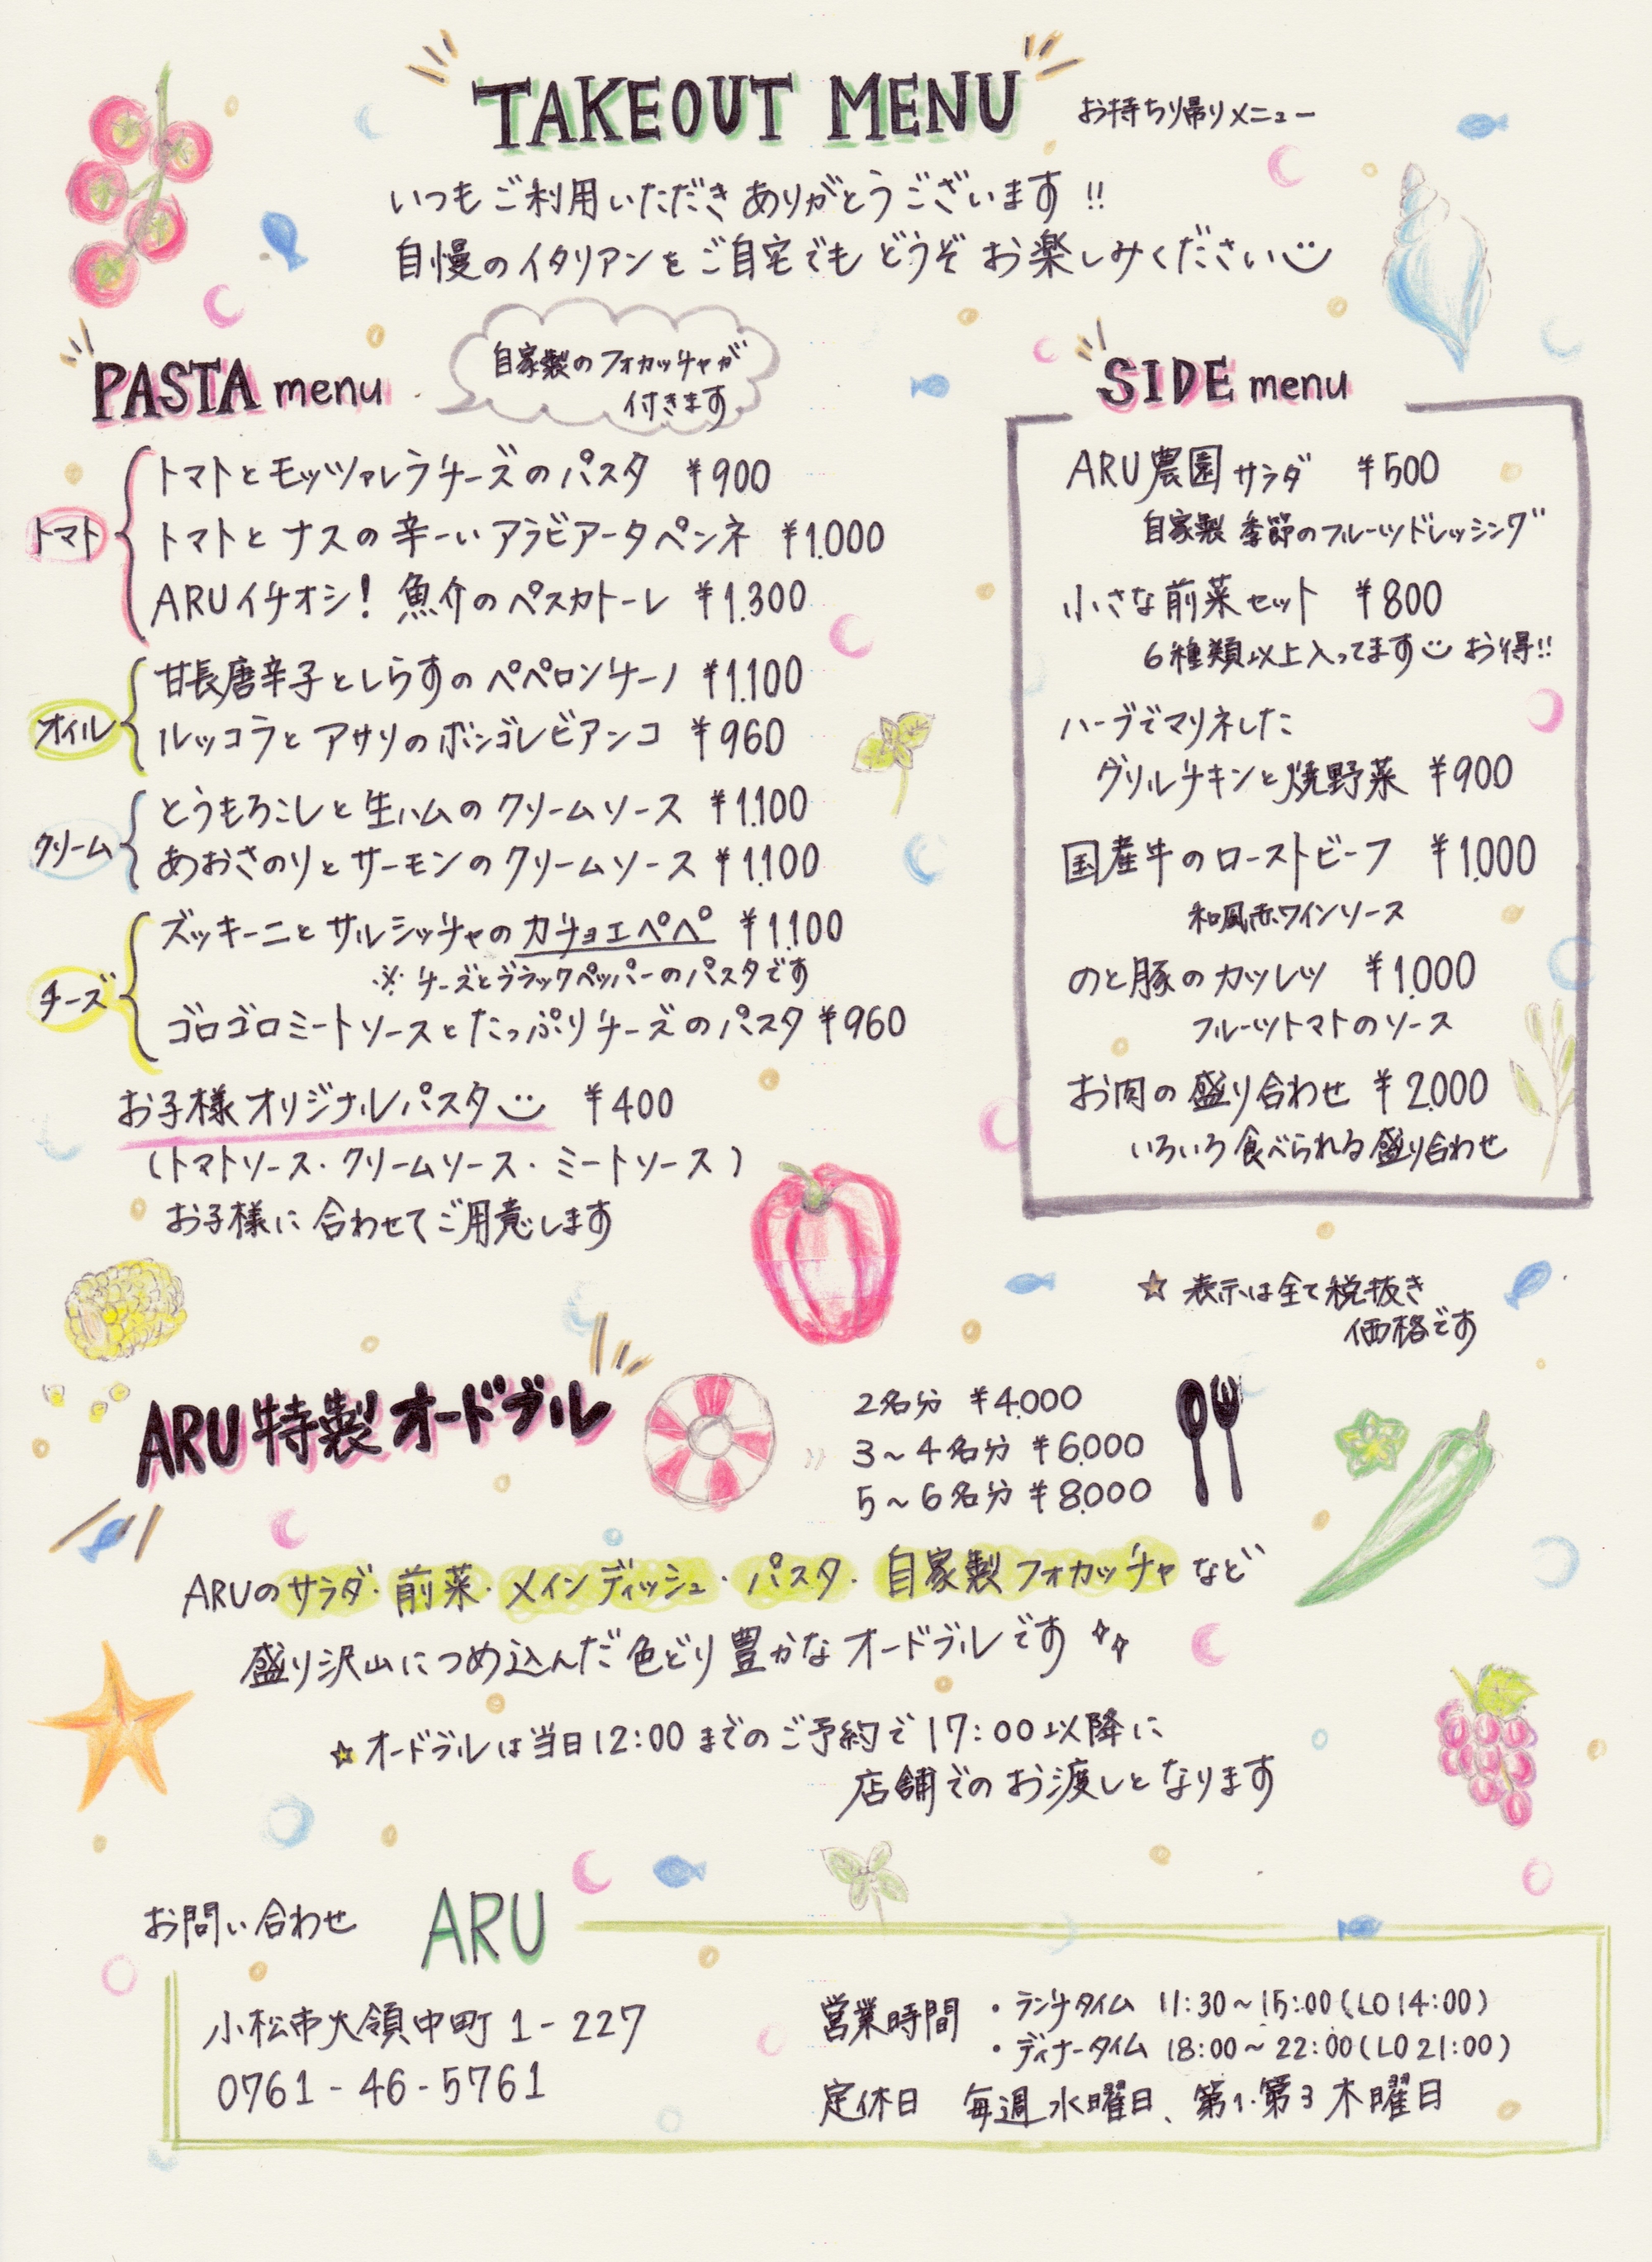 TAKEOUT MENU お持ち帰りメニュー
いつもご利用いただきありがとうございます!!
自慢のイタリアンをご自宅でもどうぞお楽しみください
PASTA menu
自家製のフォカッチャが
付きます
トマト
トマトとモッツァレラチーズのパスタ ¥900
トマトとナスの辛ーいアラビアータペンネ ¥1.000
ARUイチオシ! 魚介のペスカトーレ ¥1.300
オイル
甘長唐辛子としらすのペペロンチーノ ¥1.100
ルッコラとアサリのボンゴレビアンコ ¥960
クリーム
とうもろこしと生ハムのクリームソース ¥1.100
あおさのりとサーモンのクリームソース ¥1.100
チーズ
ズッキーニとサルシッチャのカチョエペペ ¥1.100
※チーズとブラックペッパーのパスタです
ゴロゴロミートソースとたっぷりチーズのパスタ ¥960
お子様オリジナルパスタ ¥400
(トマトソース・クリームソース・ミートソース)
お子様に合わせてご用意します
SIDE menu
ARU農園サラダ ¥500
自家製 季節のフルーツドレッシング
小さな前菜セット ¥800
6種類以上入ってます お得!!
ハーブでマリネした
グリルチキンと焼野菜 ¥900
国産牛のローストビーフ ¥1.000
和風赤ワインソース
のと豚のカツレツ ¥1.000
フルーツトマトのソース
お肉の盛り合わせ ¥2.000
いろいろ食べられる盛り合わせ
☆表示は全て税抜き
価格です
ARU特製オードブル
2名分 ¥4.000
3～4名分 ¥6.000
5～6名分 ¥8.000
ARUのサラダ・前菜・メインディッシュ・パスタ・自家製フォカッチャなど
盛り沢山につめ込んだ色どり豊かなオードブルです
☆オードブルは当日12:00までのご予約で17:00以降に
店舗でのお渡しとなります
お問い合わせ ARU
小松市大領中町1-227
0761-46-5761
営業時間 ・ランチタイム 11:30～15:00(LO14:00)
・ディナータイム 18:00～22:00(LO21:00)
定休日 毎週水曜日、第1・第3木曜日